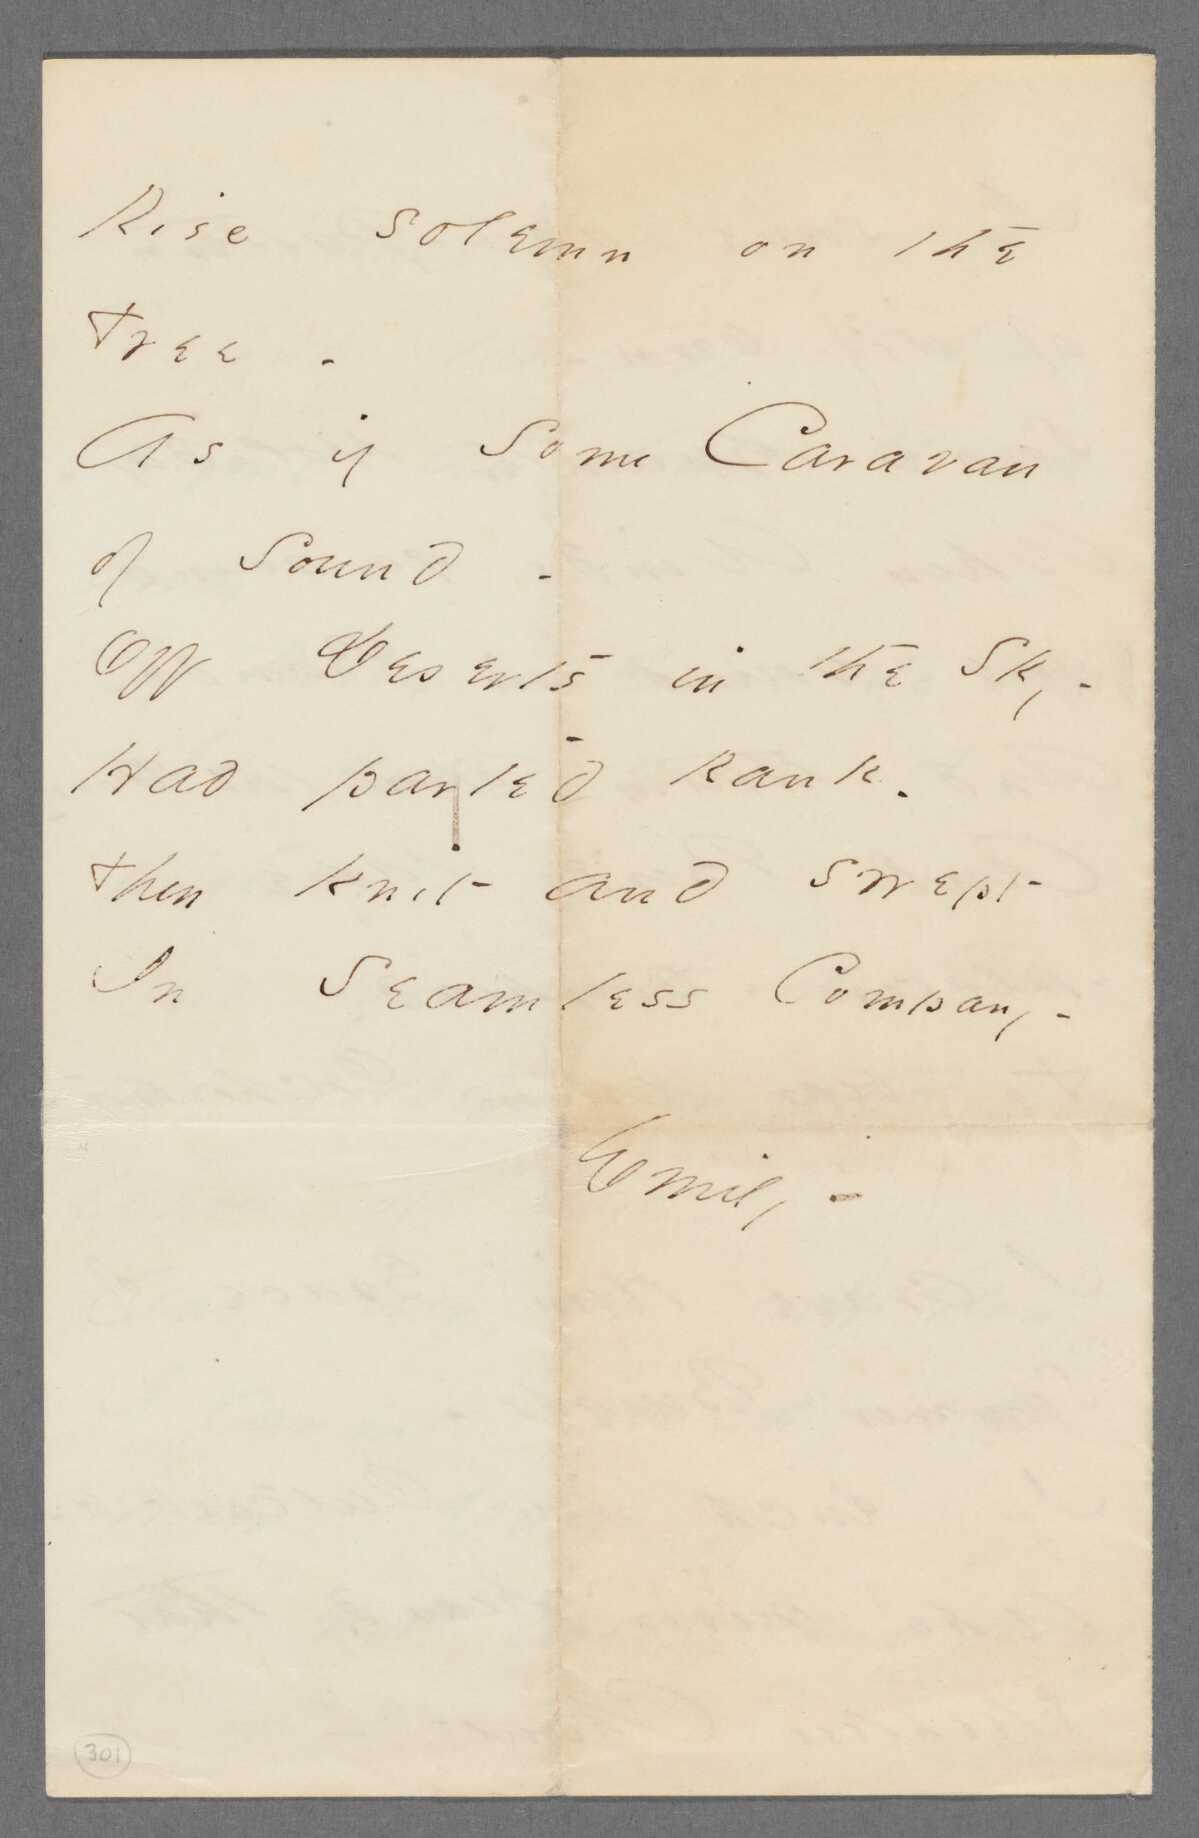 Rise solemn on the
tree -
As if some Caravan
of Sound -
Off Deserts in the Sky -
Had parted Rank -
then knit and swept
In Seamless Company -
Emily -
301